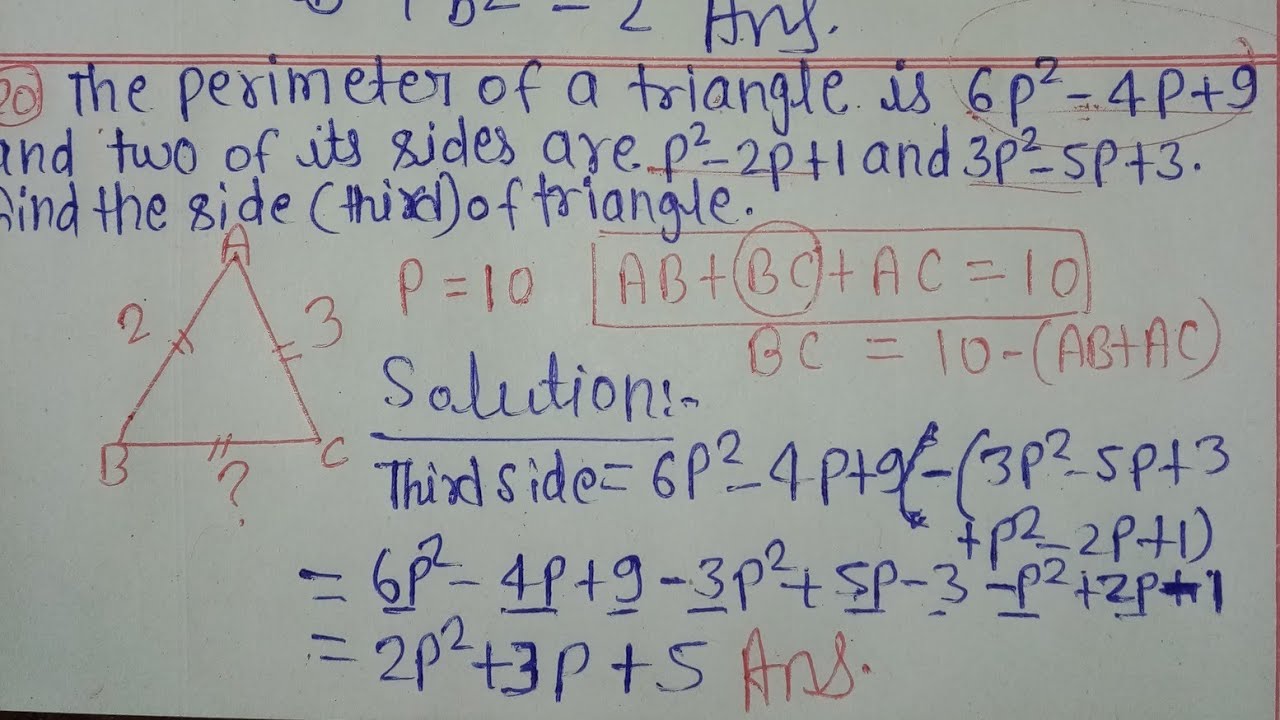 B² = 2 Ans.
20 The perimeter of a triangle is 6p²-4p+9
and two of its sides are p²-2p+1 and 3p²-5p+3.
find the side (third) of triangle.
A
P = 10 AB+BC+AC = 10
2 3
BC = 10-(AB+AC)
Solution:-
B ? C
Third side = 6p²-4p+9-(3p²-5p+3
+p²-2p+1)
= 6p²-4p+9-3p²+5p-3-p²+2p-1
= 2p²+3p+5 Ans.